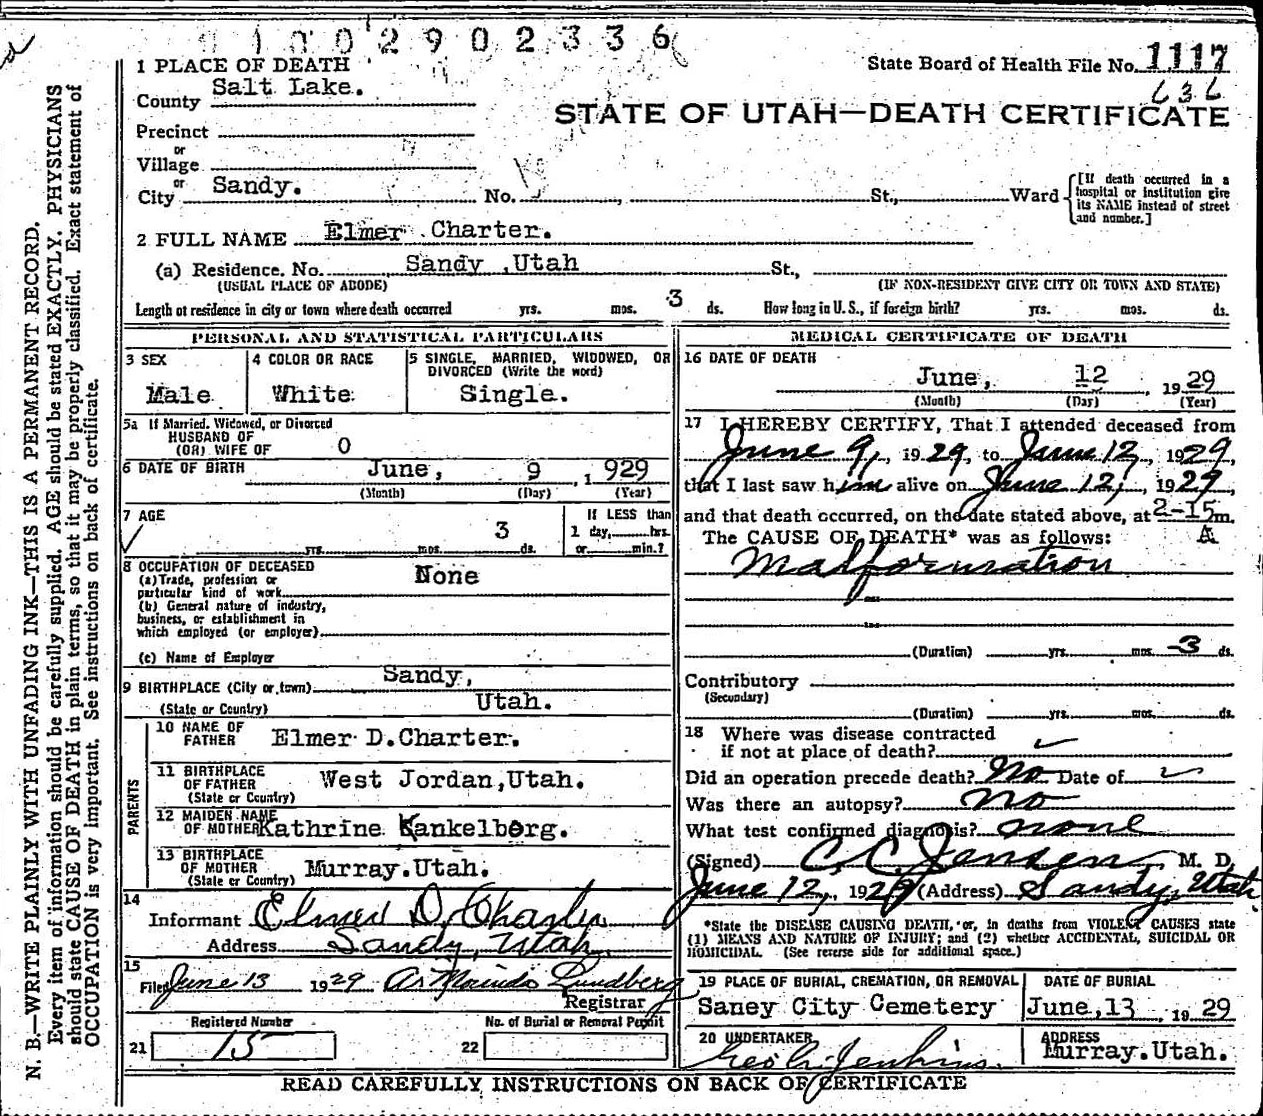 1 0 0 2 9 0 2 3 3 6
State Board of Health File No. 1117
636
STATE OF UTAH—DEATH CERTIFICATE
1 PLACE OF DEATH
County Salt Lake.
Precinct
or
Village
or
City Sandy. No. , St., Ward
[If death occurred in a
hospital or institution give
its NAME instead of street
and number.]
2 FULL NAME Elmer Charter.
(a) Residence. No. Sandy ,Utah St.,
(USUAL PLACE OF ABODE) (IF NON-RESIDENT GIVE CITY OR TOWN AND STATE)
Length of residence in city or town where death occurred yrs. mos. 3 ds. How long in U. S., if foreign birth? yrs. mos. ds.
PERSONAL AND STATISTICAL PARTICULARS
3 SEX
Male
4 COLOR OR RACE
White
5 SINGLE, MARRIED, WIDOWED, OR
DIVORCED (Write the word)
Single.
5a If Married, Widowed, or Divorced
HUSBAND OF
(OR) WIFE OF 0
6 DATE OF BIRTH June, 9 , 1 929
(Month) (Day) (Year)
7 AGE
yrs. mos. 3 ds.
If LESS than
1 day, hrs.
or min.?
8 OCCUPATION OF DECEASED
(a) Trade, profession or
particular kind of work None
(b) General nature of industry,
business, or establishment in
which employed (or employer)
(c) Name of Employer
9 BIRTHPLACE (City or town) Sandy,
(State or Country) Utah.
PARENTS
10 NAME OF
FATHER Elmer D.Charter.
11 BIRTHPLACE
OF FATHER West Jordan,Utah.
(State or Country)
12 MAIDEN NAME
OF MOTHER Kathrine Kankelberg.
13 BIRTHPLACE
OF MOTHER Murray.Utah.
(State or Country)
14
Informant Elmer D. Charter
Address Sandy, Utah.
15
Filed June 13 1929 Lundberg
Registrar
Registered Number
21 15
No. of Burial or Removal Permit
22
MEDICAL CERTIFICATE OF DEATH
16 DATE OF DEATH
June, 12 1929
(Month) (Day) (Year)
17 I HEREBY CERTIFY, That I attended deceased from
June 9, 1929, to June 12, 1929,
that I last saw him alive on June 12, 1929,
and that death occurred, on the date stated above, at 2-15 m.
A
The CAUSE OF DEATH* was as follows:
Malformation
(Duration) yrs. mos. 3 ds.
Contributory
(Secondary)
(Duration) yrs. mos. ds.
18 Where was disease contracted
if not at place of death?
Did an operation precede death? No Date of
Was there an autopsy? no
What test confirmed diagnosis? none
(Signed) C. C. Jensen, M. D.
June 12, 1929 (Address) Sandy, Utah.
*State the DISEASE CAUSING DEATH, or, in deaths from VIOLENT CAUSES state
(1) MEANS AND NATURE OF INJURY; and (2) whether ACCIDENTAL, SUICIDAL OR
HOMICIDAL. (See reverse side for additional space.)
19 PLACE OF BURIAL, CREMATION, OR REMOVAL
Saney City Cemetery
DATE OF BURIAL
June,13 , 1929
20 UNDERTAKER
Jenkins.
ADDRESS
Murray.Utah.
READ CAREFULLY INSTRUCTIONS ON BACK OF CERTIFICATE
N. B.—WRITE PLAINLY WITH UNFADING INK—THIS IS A PERMANENT RECORD.
Every item of information should be carefully supplied. AGE should be stated EXACTLY. PHYSICIANS
should state CAUSE OF DEATH in plain terms, so that it may be properly classified. Exact statement of
OCCUPATION is very important. See instructions on back of certificate.